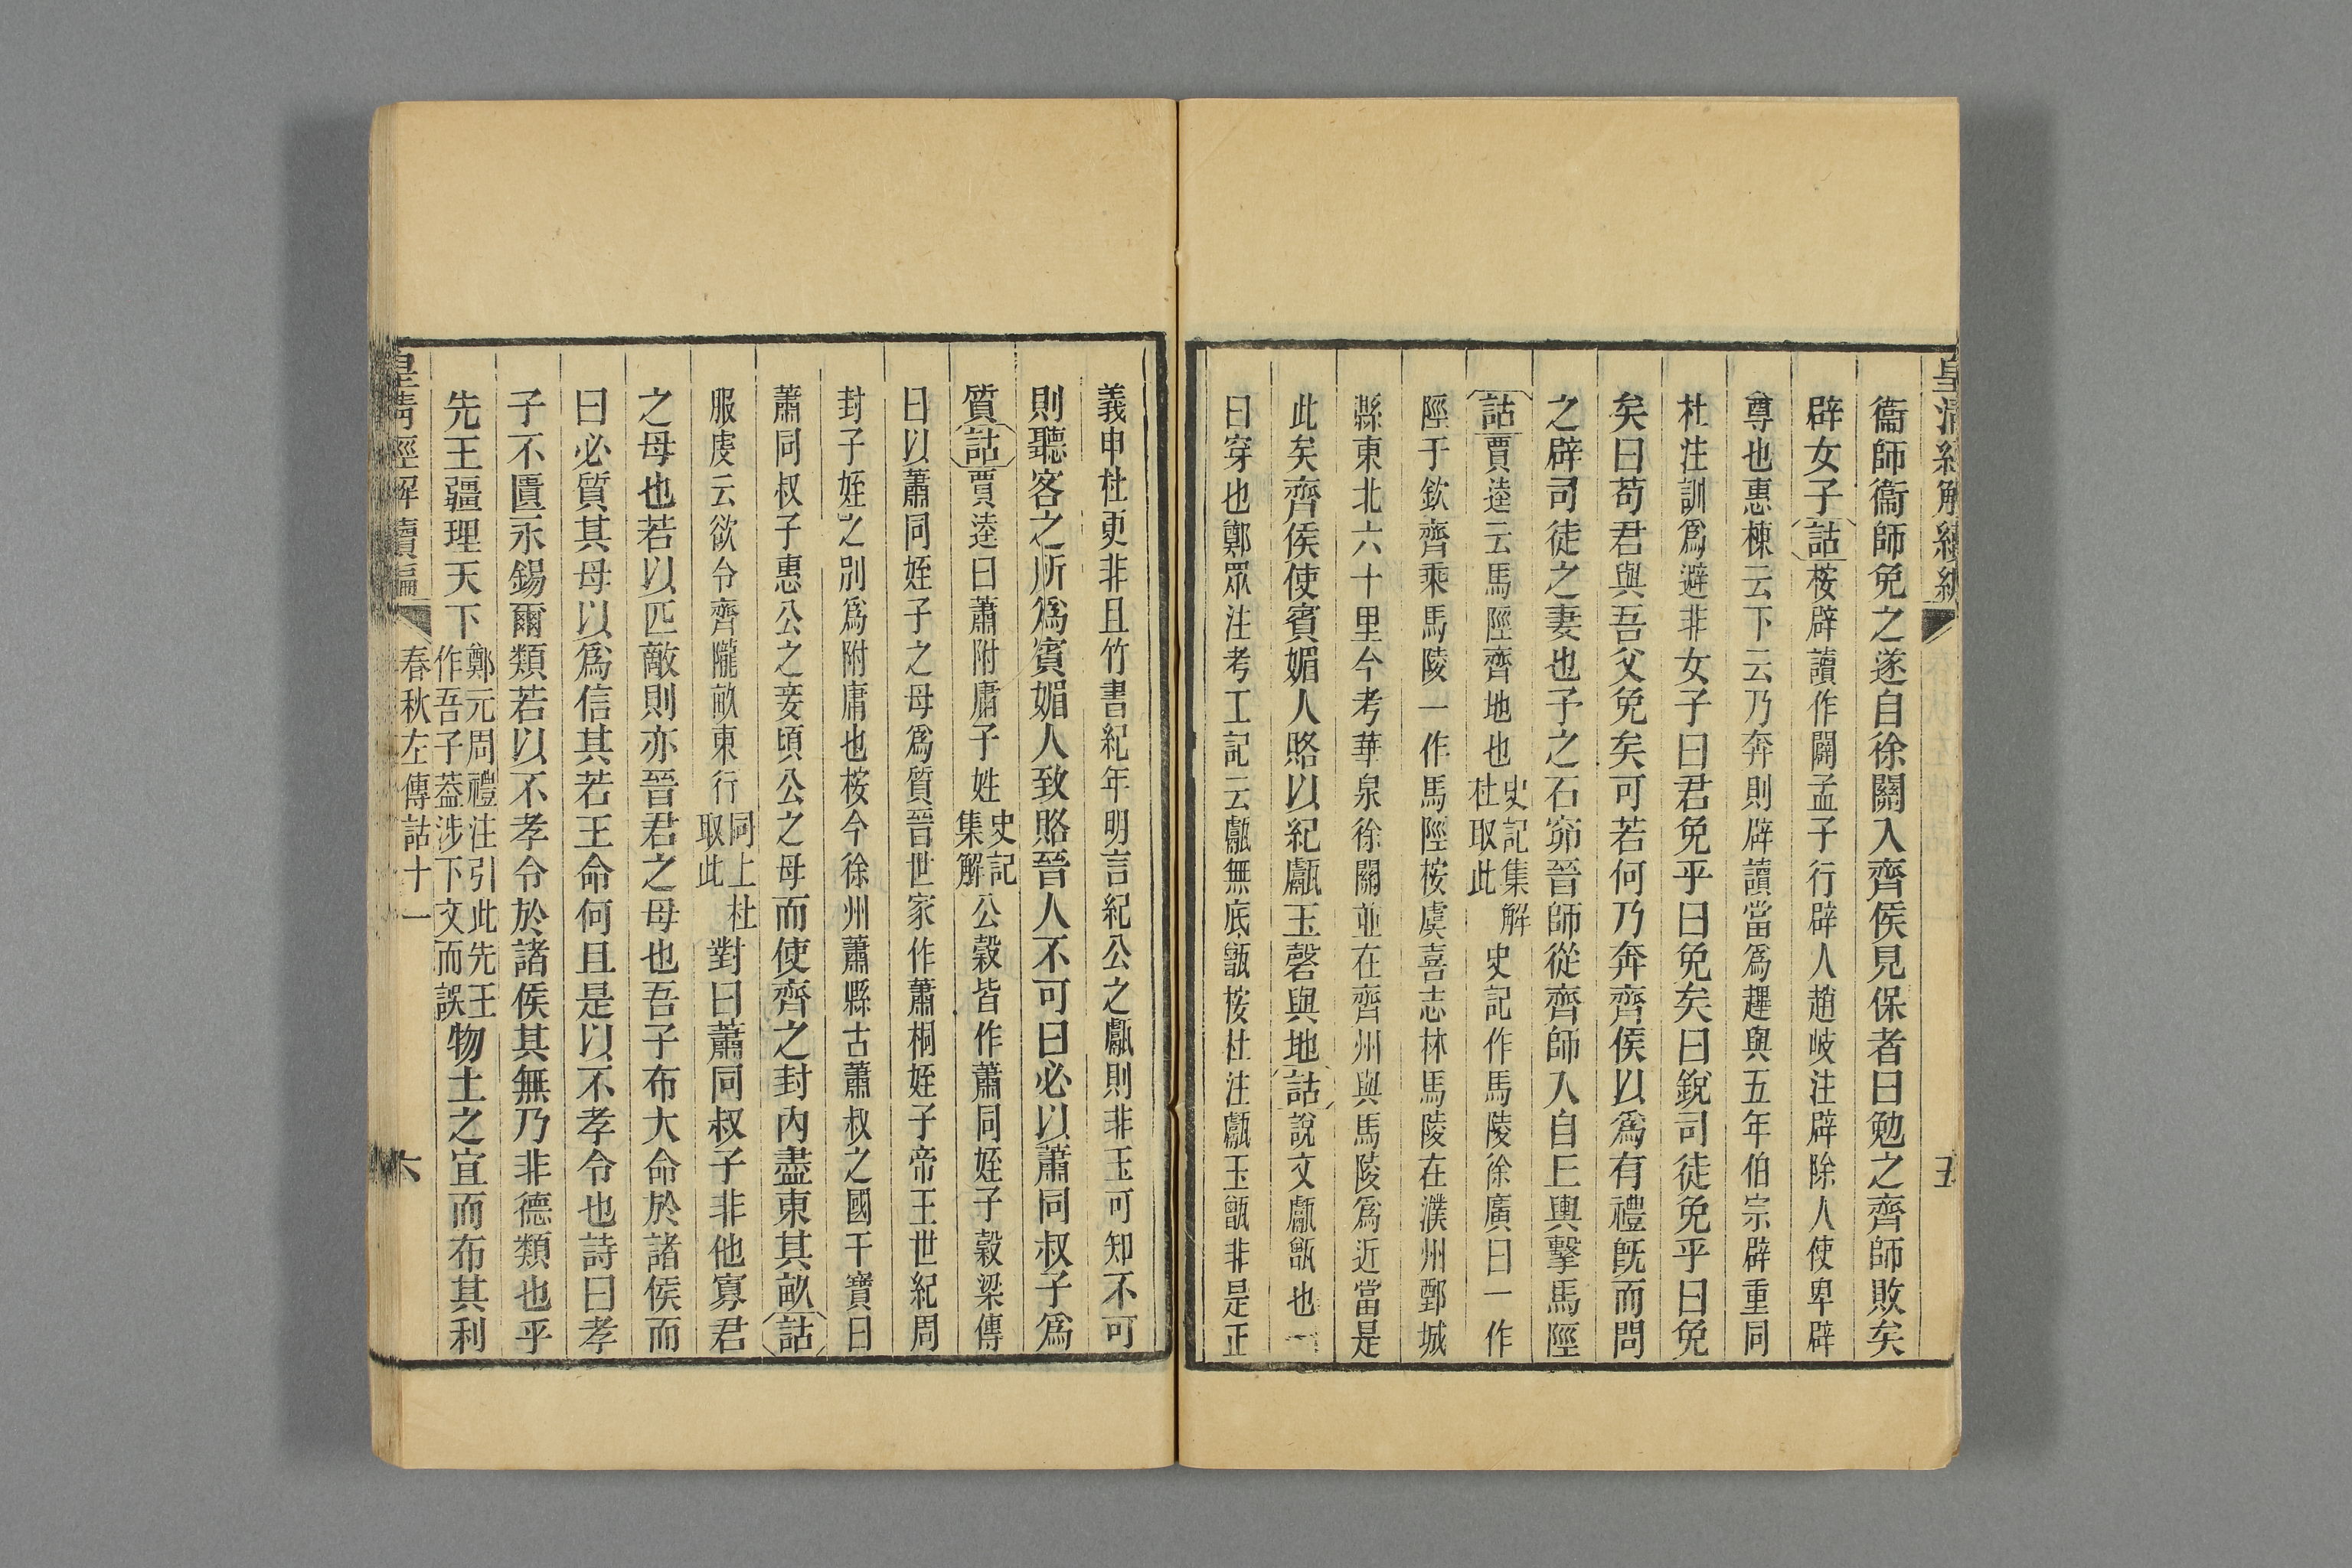 皇清經解續編
五
衞師衞師免之遂自徐關入齊侯見保者曰勉之齊師敗矣
辟女子詁桉辟讀作闢孟子行辟人趙岐注辟除人使卑辟
尊也惠棟云下云乃奔則辟讀當爲趯與五年伯宗辟重同
杜注訓爲避非女子曰君免乎曰免矣曰銳司徒免乎曰免
矣曰苟君與吾父免矣可若何乃奔齊侯以爲有禮旣而問
之辟司徒之妻也予之石窌晉師從齊師入自丘輿擊馬陘
詁賈逵云馬陘齊地也史記集解杜取此史記作馬陵徐廣曰一作
陘于欽齊乘馬陵一作馬陘桉虞喜志林馬陵在濮州鄄城
縣東北六十里今考華泉徐關並在齊州與馬陵爲近當是
此矣齊侯使賓媚人賂以紀甗玉磬與地詁說文甗甑也一
曰穿也鄭眾注考工記云甗無底甑桉杜注甗玉甑非是正
義申杜更非且竹書紀年明言紀公之甗則非玉可知不可
則聽客之所爲賓媚人致賂晉人不可曰必以蕭同叔子爲
質詁賈逵曰蕭附庸子姓史記集解公穀皆作蕭同姪子穀梁傳
曰以蕭同姪子之母爲質晉世家作蕭桐姪子帝王世紀周
封子姪之別爲附庸也桉今徐州蕭縣古蕭叔之國干寶曰
蕭同叔子惠公之妾頃公之母而使齊之封內盡東其畝詁
服虔云欲令齊隴畝東行同上杜取此對曰蕭同叔子非他寡君
之母也若以匹敵則亦晉君之母也吾子布大命於諸侯而
曰必質其母以爲信其若王命何且是以不孝令也詩曰孝
子不匱永錫爾類若以不孝令於諸侯其無乃非德類也乎
先王疆理天下鄭元周禮注引此先王作吾子蓋涉下文而誤物土之宜而布其利
皇清經解續編
春秋左傳詁十一
六